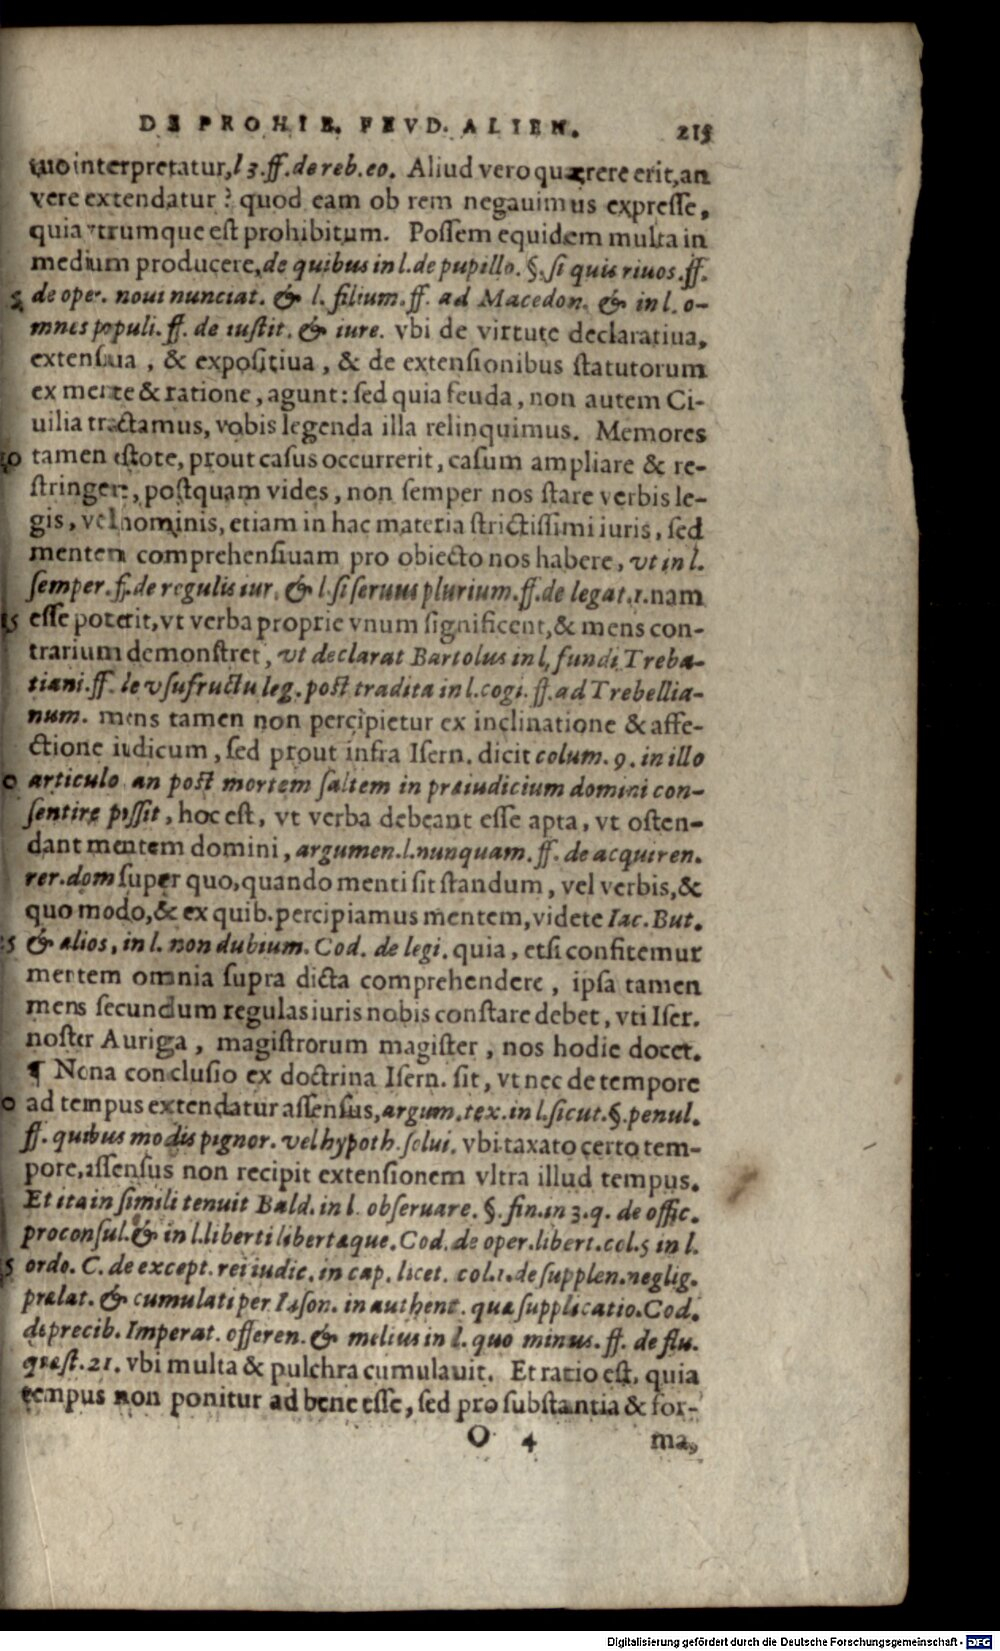 DE PROHIB. FEVD. ALIEN. 215
tuo interpretatur, l 3. ff. de reb. eo. Aliud vero quærere erit, an
vere extendatur ? quod eam ob rem negauimus expresse,
quia vtrumque est prohibitum. Possem equidem multa in
medium producere, de quibus in l. de pupillo. §. si quis riuos. ff.
5 de oper. noui nunciat. & l. filium. ff. ad Macedon. & in l. o-
mnes populi. ff. de iustit. & iure. vbi de virtute declaratiua,
extensiua, & expositiua, & de extensionibus statutorum
ex mente & ratione, agunt: sed quia feuda, non autem Ci-
uilia tractamus, vobis legenda illa relinquimus. Memores
10 tamen estote, prout casus occurrerit, casum ampliare & re-
stringere, postquam vides, non semper nos stare verbis le-
gis, vel nominis, etiam in hac materia strictissimi iuris, sed
mentem comprehensiuam pro obiecto nos habere, vt in l.
semper. ff. de regulis iur. & l. si seruus plurium. ff. de legat. 1. nam
15 esse poterit, vt verba proprie vnum significent, & mens con-
trarium demonstret, vt declarat Bartolus in l. fundi Treba-
tiani. ff. de vsufructu leg. post tradita in l. cogi. ff. ad Trebellia-
num. mens tamen non percipietur ex inclinatione & affe-
ctione iudicum, sed prout infra Isern. dicit colum. 9. in illo
0 articulo an post mortem saltem in præiudicium domini con-
sentire possit, hoc est, vt verba debeant esse apta, vt osten-
dant mentem domini, argumen. l. nunquam. ff. de acquiren.
rer. dom super quo, quando menti sit standum, vel verbis, &
quo modo, & ex quib. percipiamus mentem, videte Iac. But.
25 & alios, in l. non dubium. Cod. de legi. quia, etsi confitemur
mentem omnia supra dicta comprehendere, ipsa tamen
mens secundum regulas iuris nobis constare debet, vti Iser.
noster Auriga, magistrorum magister, nos hodie docet.
¶ Nona conclusio ex doctrina Isern. sit, vt nec de tempore
0 ad tempus extendatur assensus, argum. tex. in l. sicut. §. penul.
ff. quibus modis pignor. vel hypoth. solui. vbi taxato certo tem-
pore, assensus non recipit extensionem vltra illud tempus.
Et ita in simili tenuit Bald. in l. obseruare. §. fin. in 3. q. de offic.
proconsul. & in l. liberti libertæque. Cod. de oper. libert. col. 5 in l.
5 ordo. C. de except. rei iudic. in cap. licet. col. 1. de supplen. neglig.
prælat. & cumulatiper Iason. in authent. quæ supplicatio. Cod.
de precib. Imperat. offeren. & melius in l. quo minus. ff. de flu.
quæst. 21. vbi multa & pulchra cumulauit. Et ratio est, quia
tempus non ponitur ad bene esse, sed pro substantia & for-
O 4 ma,
Digitalisierung gefördert durch die Deutsche Forschungsgemeinschaft - DFG